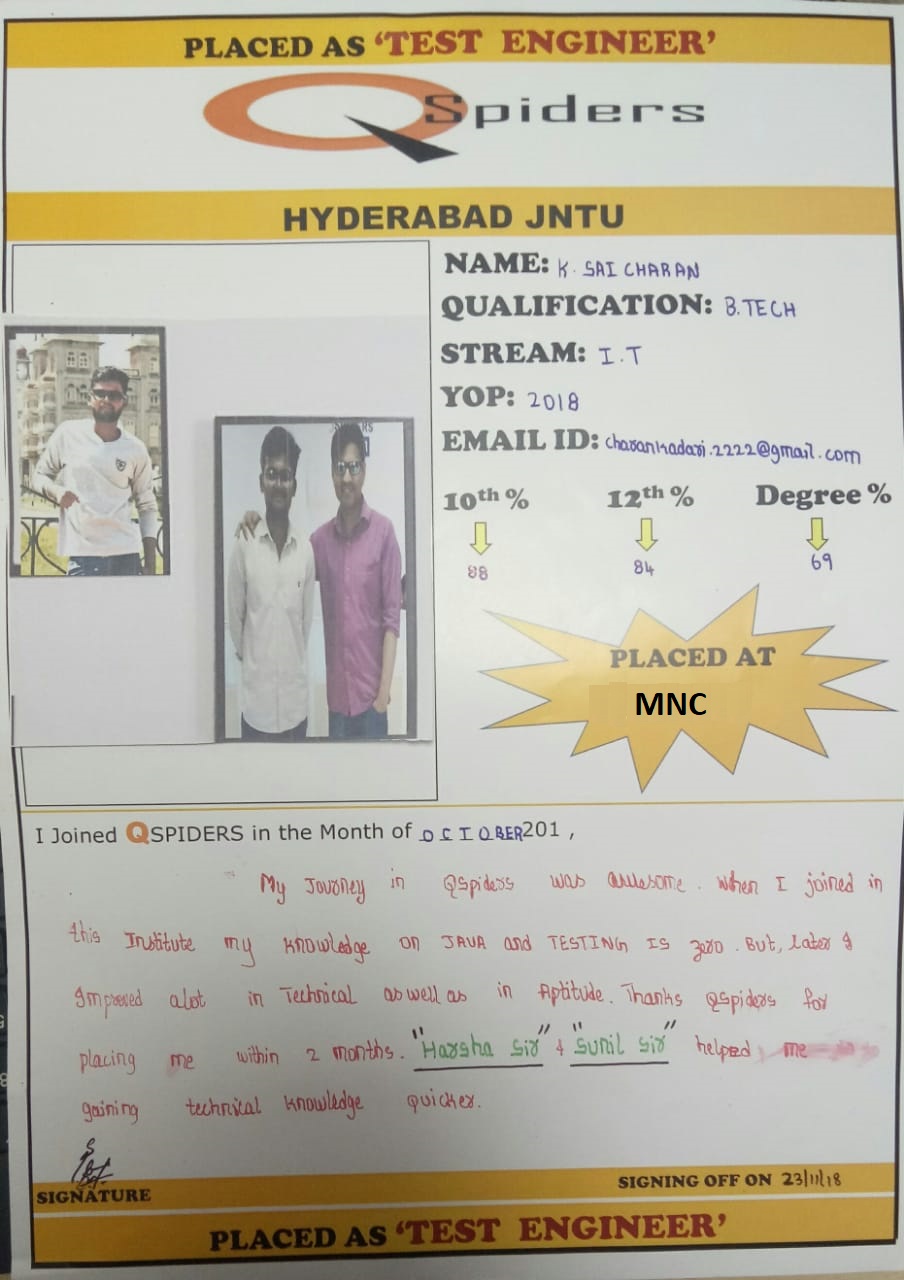 PLACED AS 'TEST ENGINEER'
QSpiders
HYDERABAD JNTU
NAME: K. SAI CHARAN
QUALIFICATION: B.TECH
STREAM: I.T
YOP: 2018
EMAIL ID: charankadari.2222@gmail.com
10th % 12th % Degree %
88 84 69
PLACED AT
MNC
I Joined QSPIDERS in the Month of OCTOBER201 ,
My Journey in QSpiders was awesome. When I joined in
this Institute my knowledge on JAVA and TESTING IS zero. But, later I
Improved alot in Technical as well as in Aptitude. Thanks QSpiders for
placing me within 2 months. "Harsha Sir" & "Sunil Sir" helped me
gaining technical knowledge quicker.
SIGNATURE
SIGNING OFF ON 23/11/18
PLACED AS 'TEST ENGINEER'